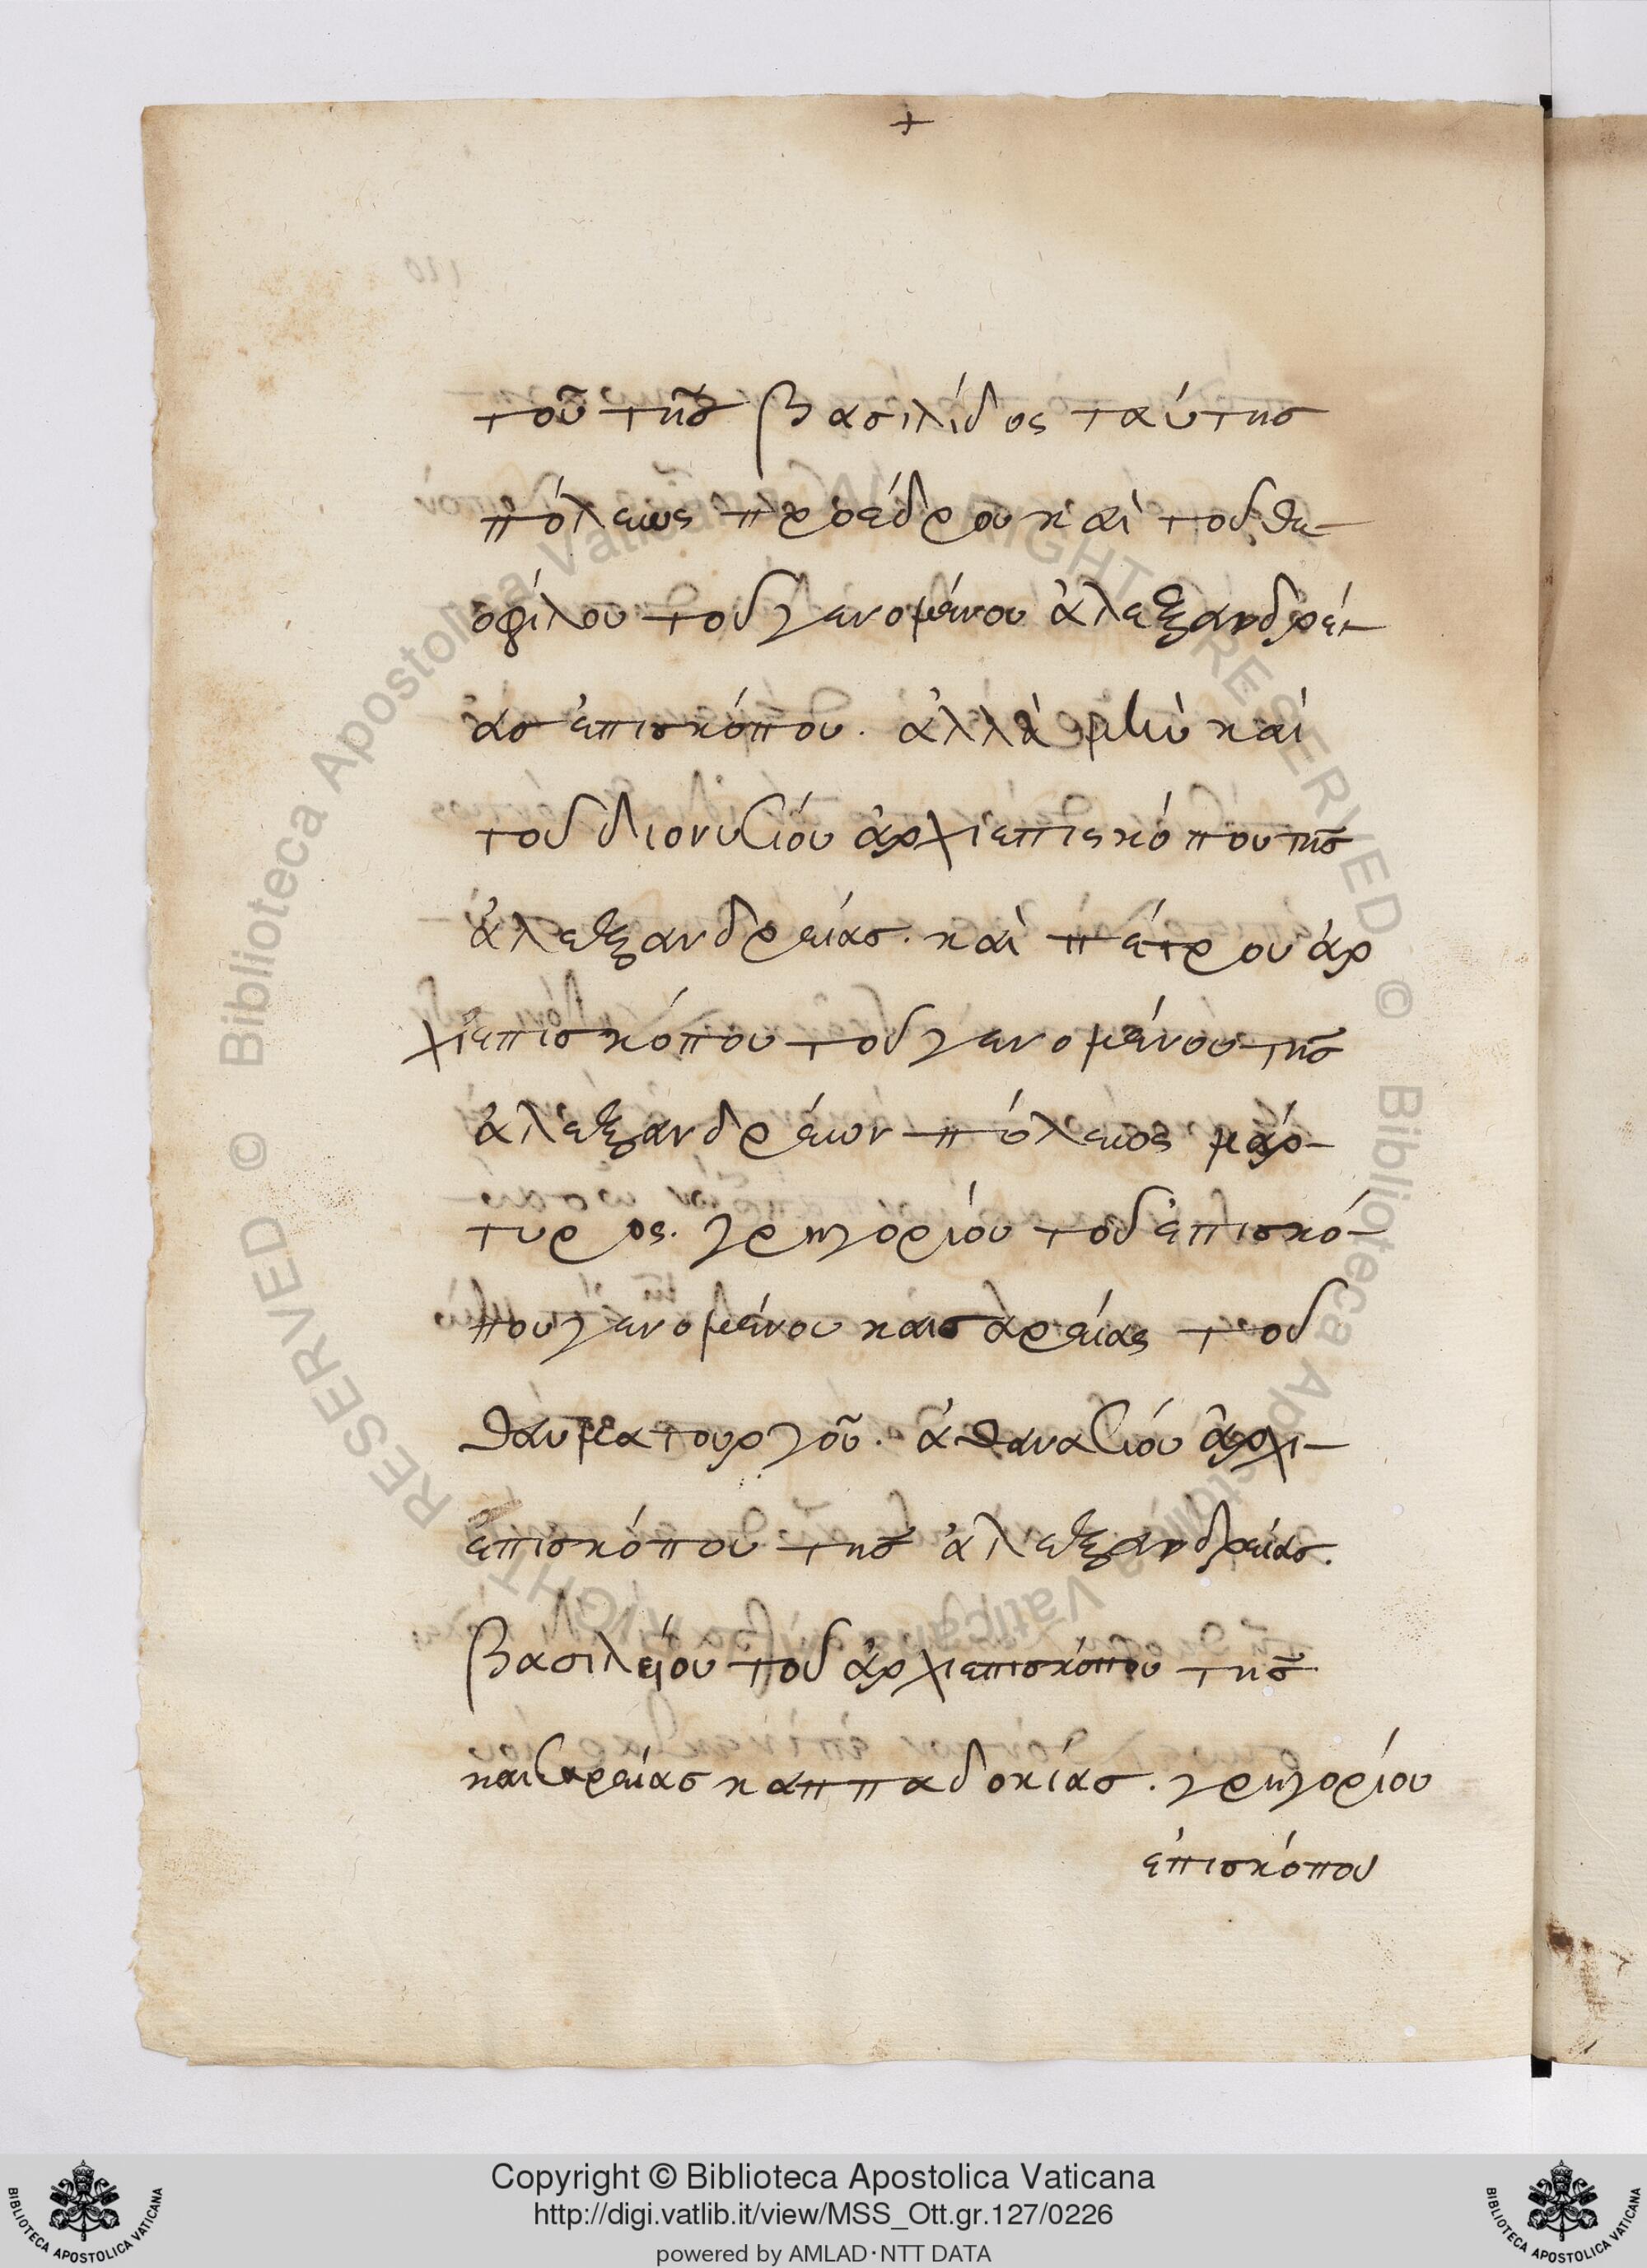 +
τοῦ τῆς βασιλίδος ταύτης
πόλεως προέδρου καὶ τοῦ θε-
οφίλου τοῦ γενομένου ἀλεξανδρεί-
ας ἐπισκόπου. ἀλλὰ μὴν καὶ
τοῦ διονυσίου ἀρχιεπισκόπου τῆς
ἀλεξανδρείας. καὶ πέτρου ἀρ
χιεπισκόπου τοῦ γενομένου τῆς
ἀλεξανδρέων πόλεως μάρ-
τυρος. γρηγορίου τοῦ ἐπισκό-
που γενομένου καισαρείας τοῦ
θαυματουργοῦ. ἀθανασίου ἀρχι-
επισκόπου τῆς ἀλεξανδρείας.
βασιλείου τοῦ ἀρχιεπισκόπου τῆς
καισαρείας καππαδοκίας. γρηγορίου
ἐπισκόπου
© Biblioteca Apostolica Vaticana RIGHTS RESERVED
© Biblioteca Apostolica Vaticana RIGHTS RESERVED
BIBLIOTECA APOSTOLICA VATICANA
Copyright © Biblioteca Apostolica Vaticana
http://digi.vatlib.it/view/MSS_Ott.gr.127/0226
powered by AMLAD·NTT DATA
BIBLIOTECA APOSTOLICA VATICANA